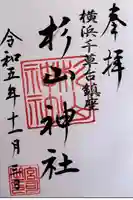 奉拝
横浜千草台鎮座
杉山神社
令和五年十一月三日